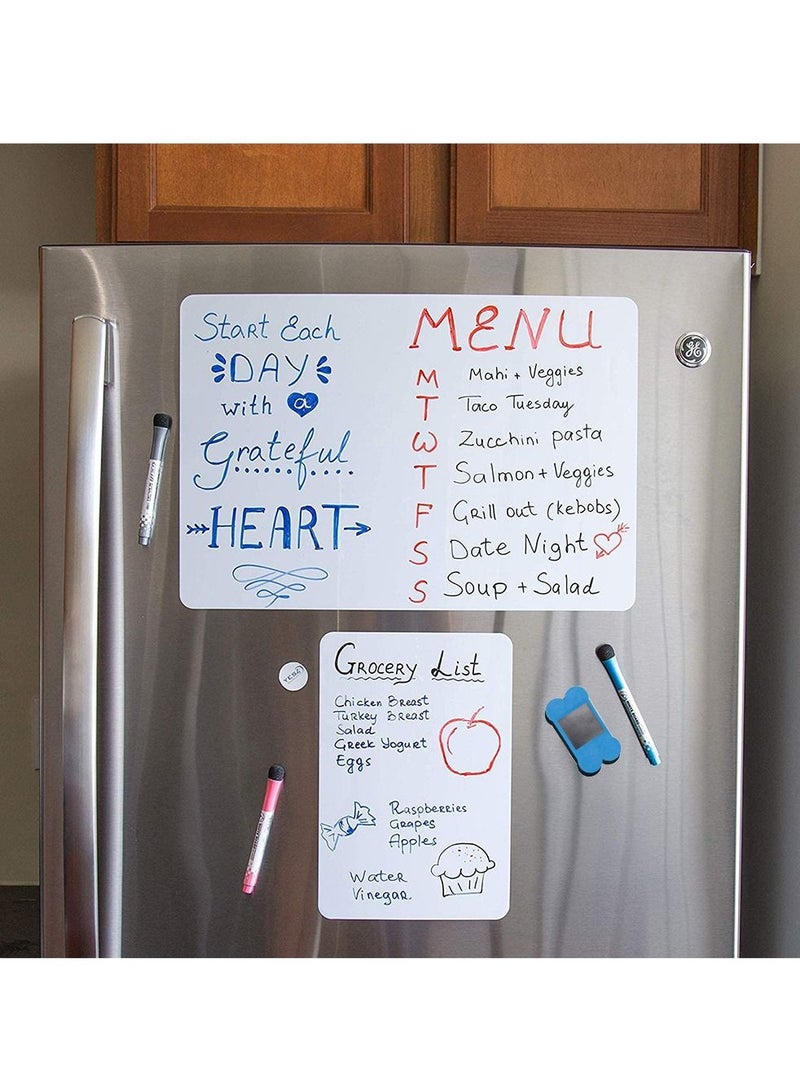 Start Each
DAY
with a
Grateful
HEART
MENU
M Mahi + Veggies
T Taco Tuesday
W Zucchini pasta
T Salmon + Veggies
F Grill out (kebobs)
S Date Night
S Soup + Salad
GE
Grocery List
Chicken Breast
Turkey Breast
Salad
Greek Yogurt
Eggs
Raspberries
Grapes
Apples
Water
Vinegar.